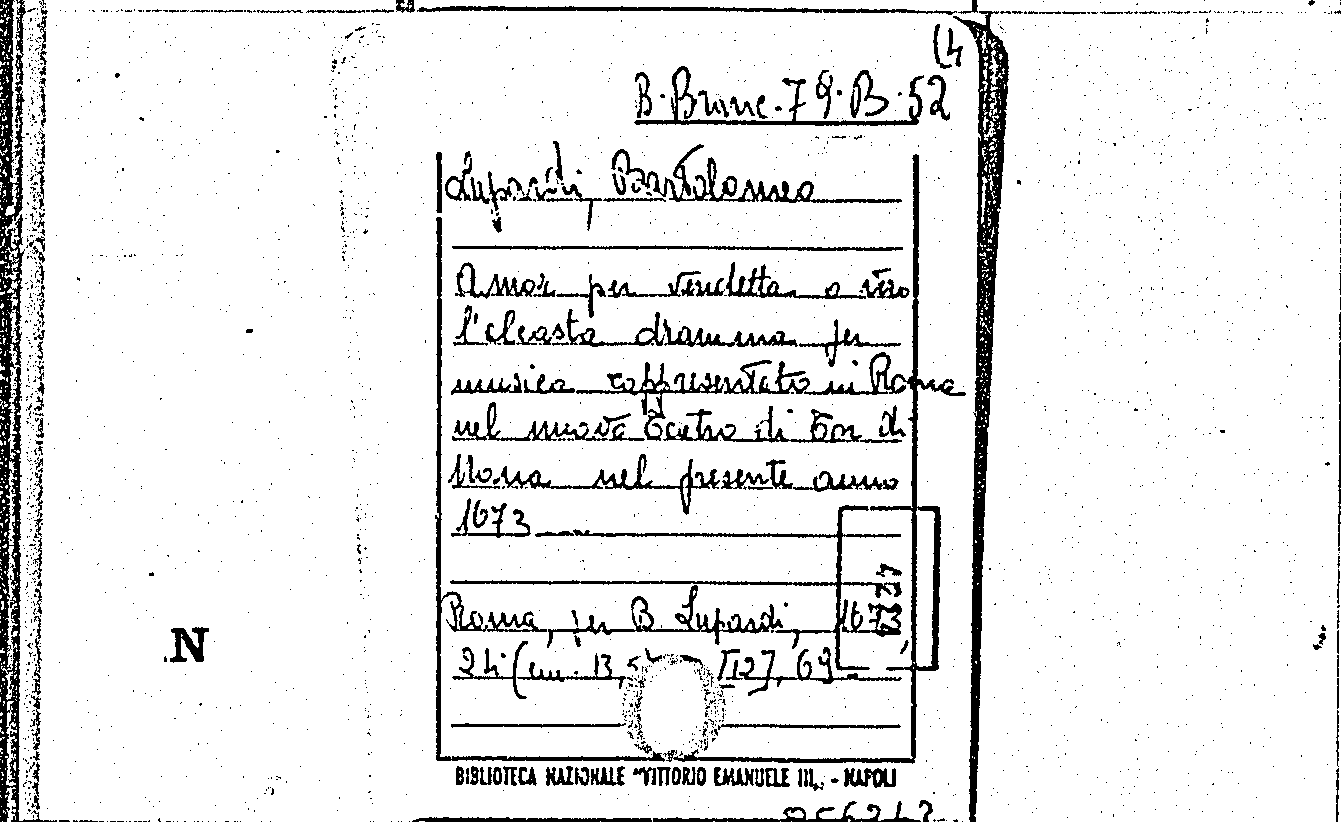 (4
B. Branc. 79. B. 52
Lupardi, Bartolomeo
Amor per vendetta o vero
l'alcasta dramma per
musica rappresentato in Roma
nel nuovo Teatro di Tor di
Nona nel presente anno
1673
Roma, per B. Lupardi, 1673,
24 (cm. 13, [12], 69
N
BIBLIOTECA NAZIONALE "VITTORIO EMANUELE III„ - NAPOLI